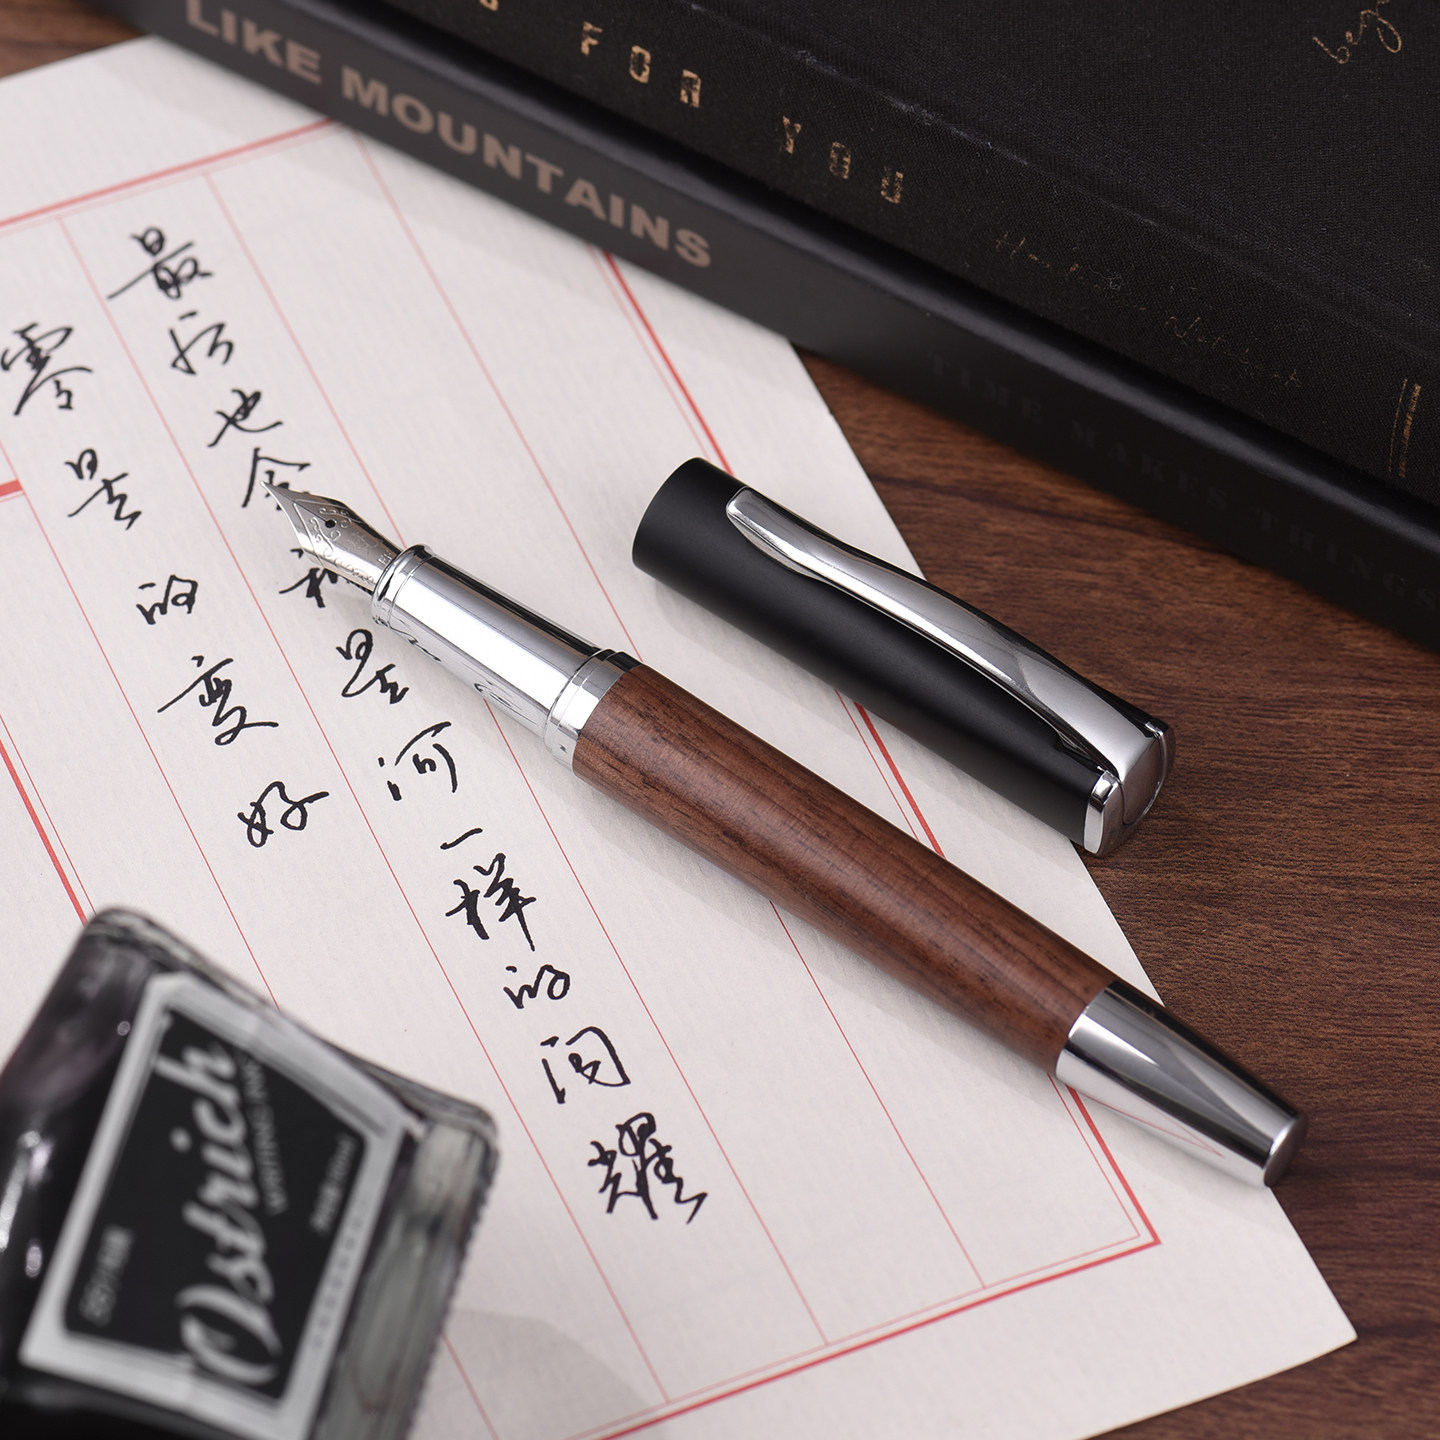 FOR YOU
LIKE MOUNTAINS
TIME MAKES THINGS
零星的变好
最后也会和星河一样的闪耀
Ostrich
WRITING INK